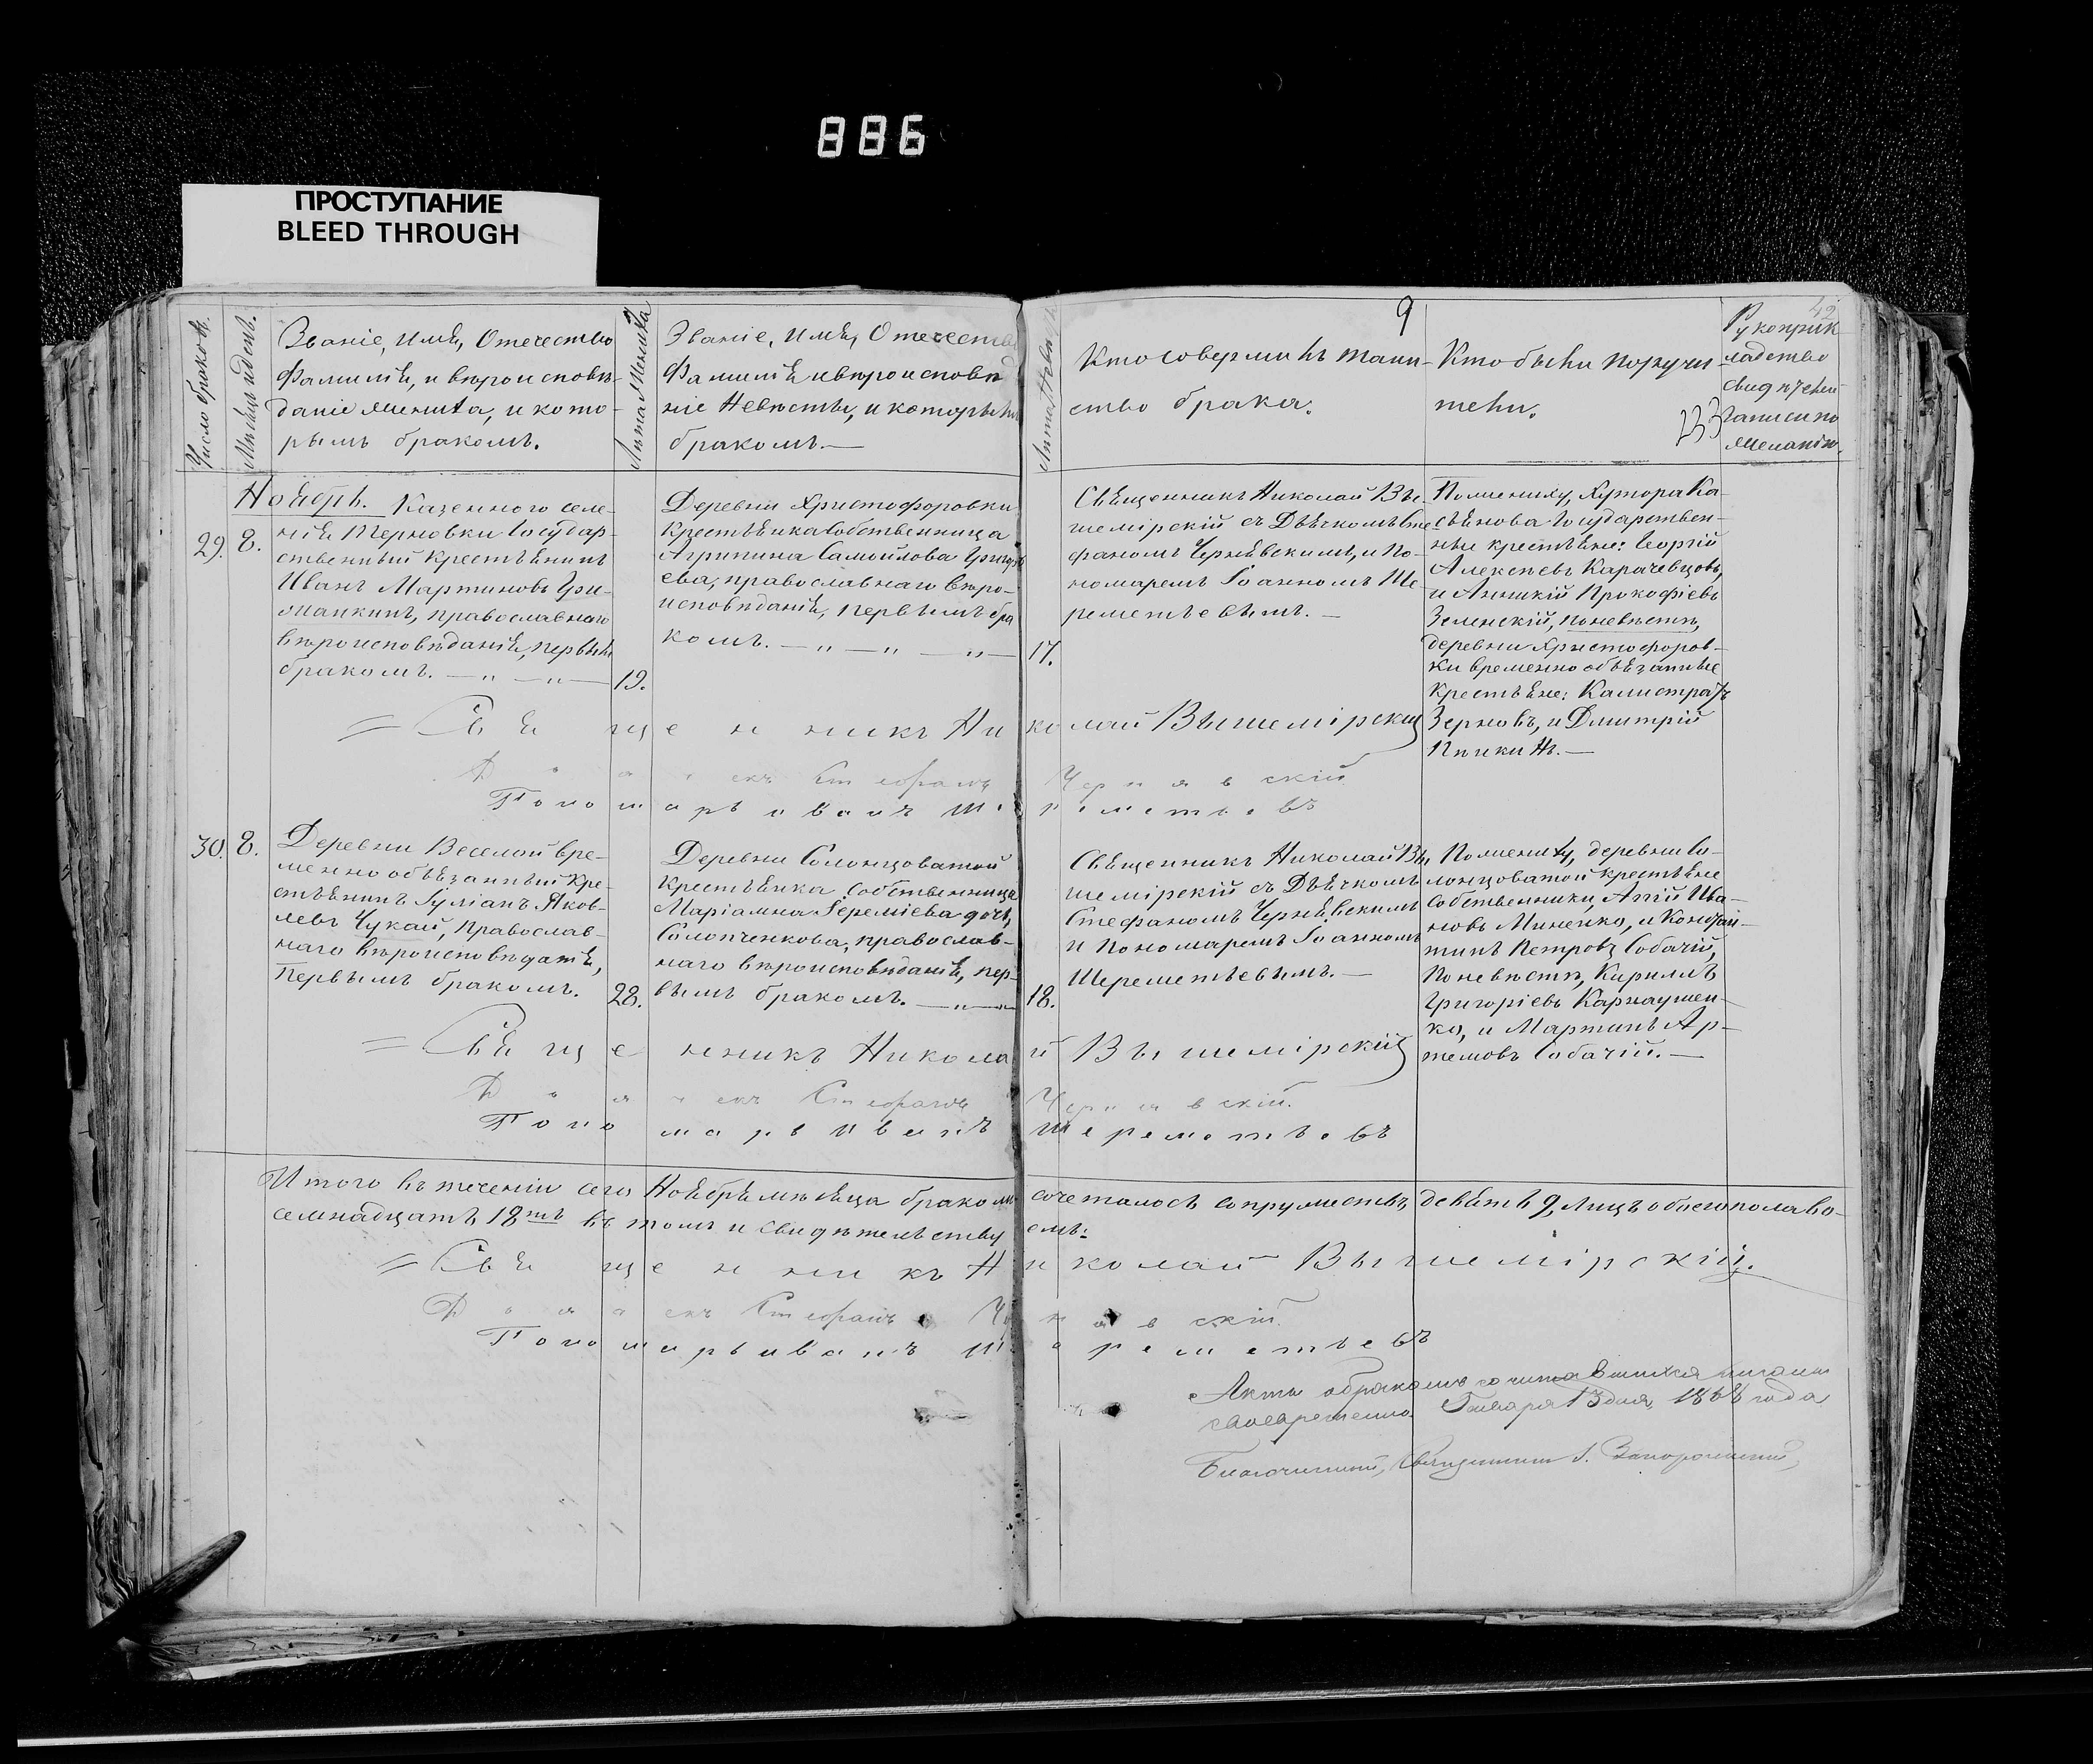 886
ПРОСТУПАНИЕ
BLEED THROUGH
9
42
233
Число браковъ.
Мѣсяцъ и день.
Званіе, имя, Отечество
Фамилія, и вѣроисповѣ-
даніе жениха, и кото-
рымъ бракомъ.
Лѣта Жениха
Званіе, имя, Отечество
Фамилія и вѣроисповѣд
ніе Невѣсты, и которымъ
бракомъ.
Лѣта Невѣсты
Кто совершилъ таин-
ство брака.
Кто были поручи-
тели.
Рукоприк
ладство
свидѣтелей
записи по
желанію.
Ноябрь. Казенного селе-
29. 8. нія Терновки Государ-
ственный крестьянинъ
Иванъ Мартиновъ Гри-
православного
вѣроисповѣданія, первымъ
бракомъ. — " — " —
19.
Деревни Христофоровки
крестьянка Собственница
Агрипина Самойлова Григорь
ева, православнаго вѣро-
исповѣданія, первымъ бра
комъ. — " — " — " —
17.
Священникъ Николай Вы
шемірскій съ Дьячкомъ Сте
фаномъ Чернявскимъ, и По-
номаремъ Іоанномъ Ше-
реметьевымъ. —
По жениху, хутора Ка-
сьянова Государствен-
ные крестьяне: Георгій
Алексѣевъ Карачевцовъ,
и Аникій Прокофіевъ
Зеленскій, по невѣстѣ,
деревни Христофоров-
ки временно обязанные
крестьяне: Калистратъ
Зерновъ, и Дмитрій
= Священникъ Николай Вышемірскій
Дьячекъ Стефанъ Чернявскій
Пономарь Иванъ Шереметьевъ
30. 8. Деревни Веселой вре-
менно обязанный кре-
стьянинъ Іуліанъ Яков-
левъ Чукай, православ-
наго вѣроисповѣданія,
первымъ бракомъ.
28.
Деревни Солонцоватой
крестьянка Собственница
Маріамна Іереміева дочь,
Солопченкова, православ-
наго вѣроисповѣданія, пер-
вымъ бракомъ. — " —
18.
Священникъ Николай Вы
шемірскій съ Дьячкомъ
Стефаномъ Чернявскимъ
и Пономаремъ Іоанномъ
Шереметьевымъ. —
По жениху, деревни Со-
лонцоватой крестьяне
Собственники, Ива-
новъ Миненко, и Констан-
тинъ Петровъ Собачій,
По невѣстѣ, Кириллъ
Григоріевъ Карнаушен-
ко, и Мартинъ Ар-
темовъ Собачій. —
= Священникъ Николай Вышемірскій
Дьячекъ Стефанъ Чернявскій.
Пономарь Иванъ Шереметьевъ
Итого въ теченіи сего Ноября мѣсяца бракомъ сочеталось супружествъ, девять 9, лицъ обоего пола во-
семнадцать 18ть въ томъ и свидѣтельствуемъ:
= Священникъ Николай Вышемірскій.
Дьячекъ Стефанъ Чернявскій.
Пономарь Иванъ Шереметьевъ
Акты о бракомъ сочетавшихся писаны
своевременно. Января 13 дня, 1868 года,
Благочинный, Священникъ І. Запорожскій,